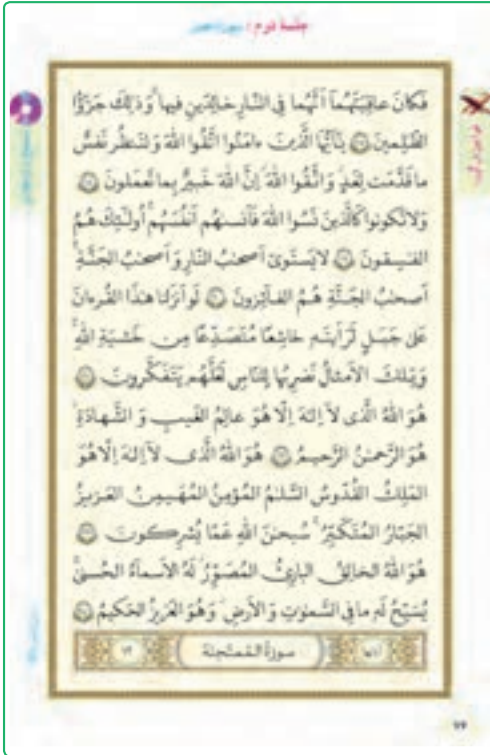 جلسهٔ دوم / سورهٔ حشر
فَكانَ عاقِبَتَهُما أَنَّهُما فِي النّارِ خالِدَينِ فيها ۚ وَذٰلِكَ جَزٰؤُا
الظّٰلِمينَ يٰأَيُّهَا الَّذينَ ءامَنُوا اتَّقُوا اللهَ وَلتَنظُر نَفسٌ
ما قَدَّمَت لِغَدٍ ۖ وَاتَّقُوا اللهَ ۚ إِنَّ اللهَ خَبيرٌ بِما تَعمَلونَ
وَلاتَكونوا كَالَّذينَ نَسُوا اللهَ فَأَنسٰهُم أَنفُسَهُم ۚ أُولٰئِكَ هُمُ
الفٰسِقونَ لايَستَوى أَصحٰبُ النّارِ وَ أَصحٰبُ الجَنَّةِ ۚ
أَصحٰبُ الجَنَّةِ هُمُ الفائِزونَ لَو أَنزَلنا هٰذَا القُرءانَ
عَلىٰ جَبَلٍ لَرَأَيتَهُ خاشِعًا مُتَصَدِّعًا مِن خَشيَةِ اللهِ ۚ
وَتِلكَ الأَمثالُ نَضرِبُها لِلنّاسِ لَعَلَّهُم يَتَفَكَّرونَ
هُوَ اللهُ الَّذى لا إِلٰهَ إِلّا هُوَ ۖ عالِمُ الغَيبِ وَ الشَّهادَةِ ۖ
هُوَ الرَّحمٰنُ الرَّحيمُ هُوَ اللهُ الَّذى لا إِلٰهَ إِلّا هُوَ
المَلِكُ القُدّوسُ السَّلٰمُ المُؤمِنُ المُهَيمِنُ العَزيزُ
الجَبّارُ المُتَكَبِّرُ ۚ سُبحٰنَ اللهِ عَمّا يُشرِكونَ
هُوَ اللهُ الخالِقُ البارِئُ المُصَوِّرُ ۖ لَهُ الأَسماءُ الحُسنىٰ ۚ
يُسَبِّحُ لَهُ ما فِى السَّمٰوٰتِ وَ الأَرضِ ۖ وَهُوَ العَزيزُ الحَكيمُ
سورة الممتحنة